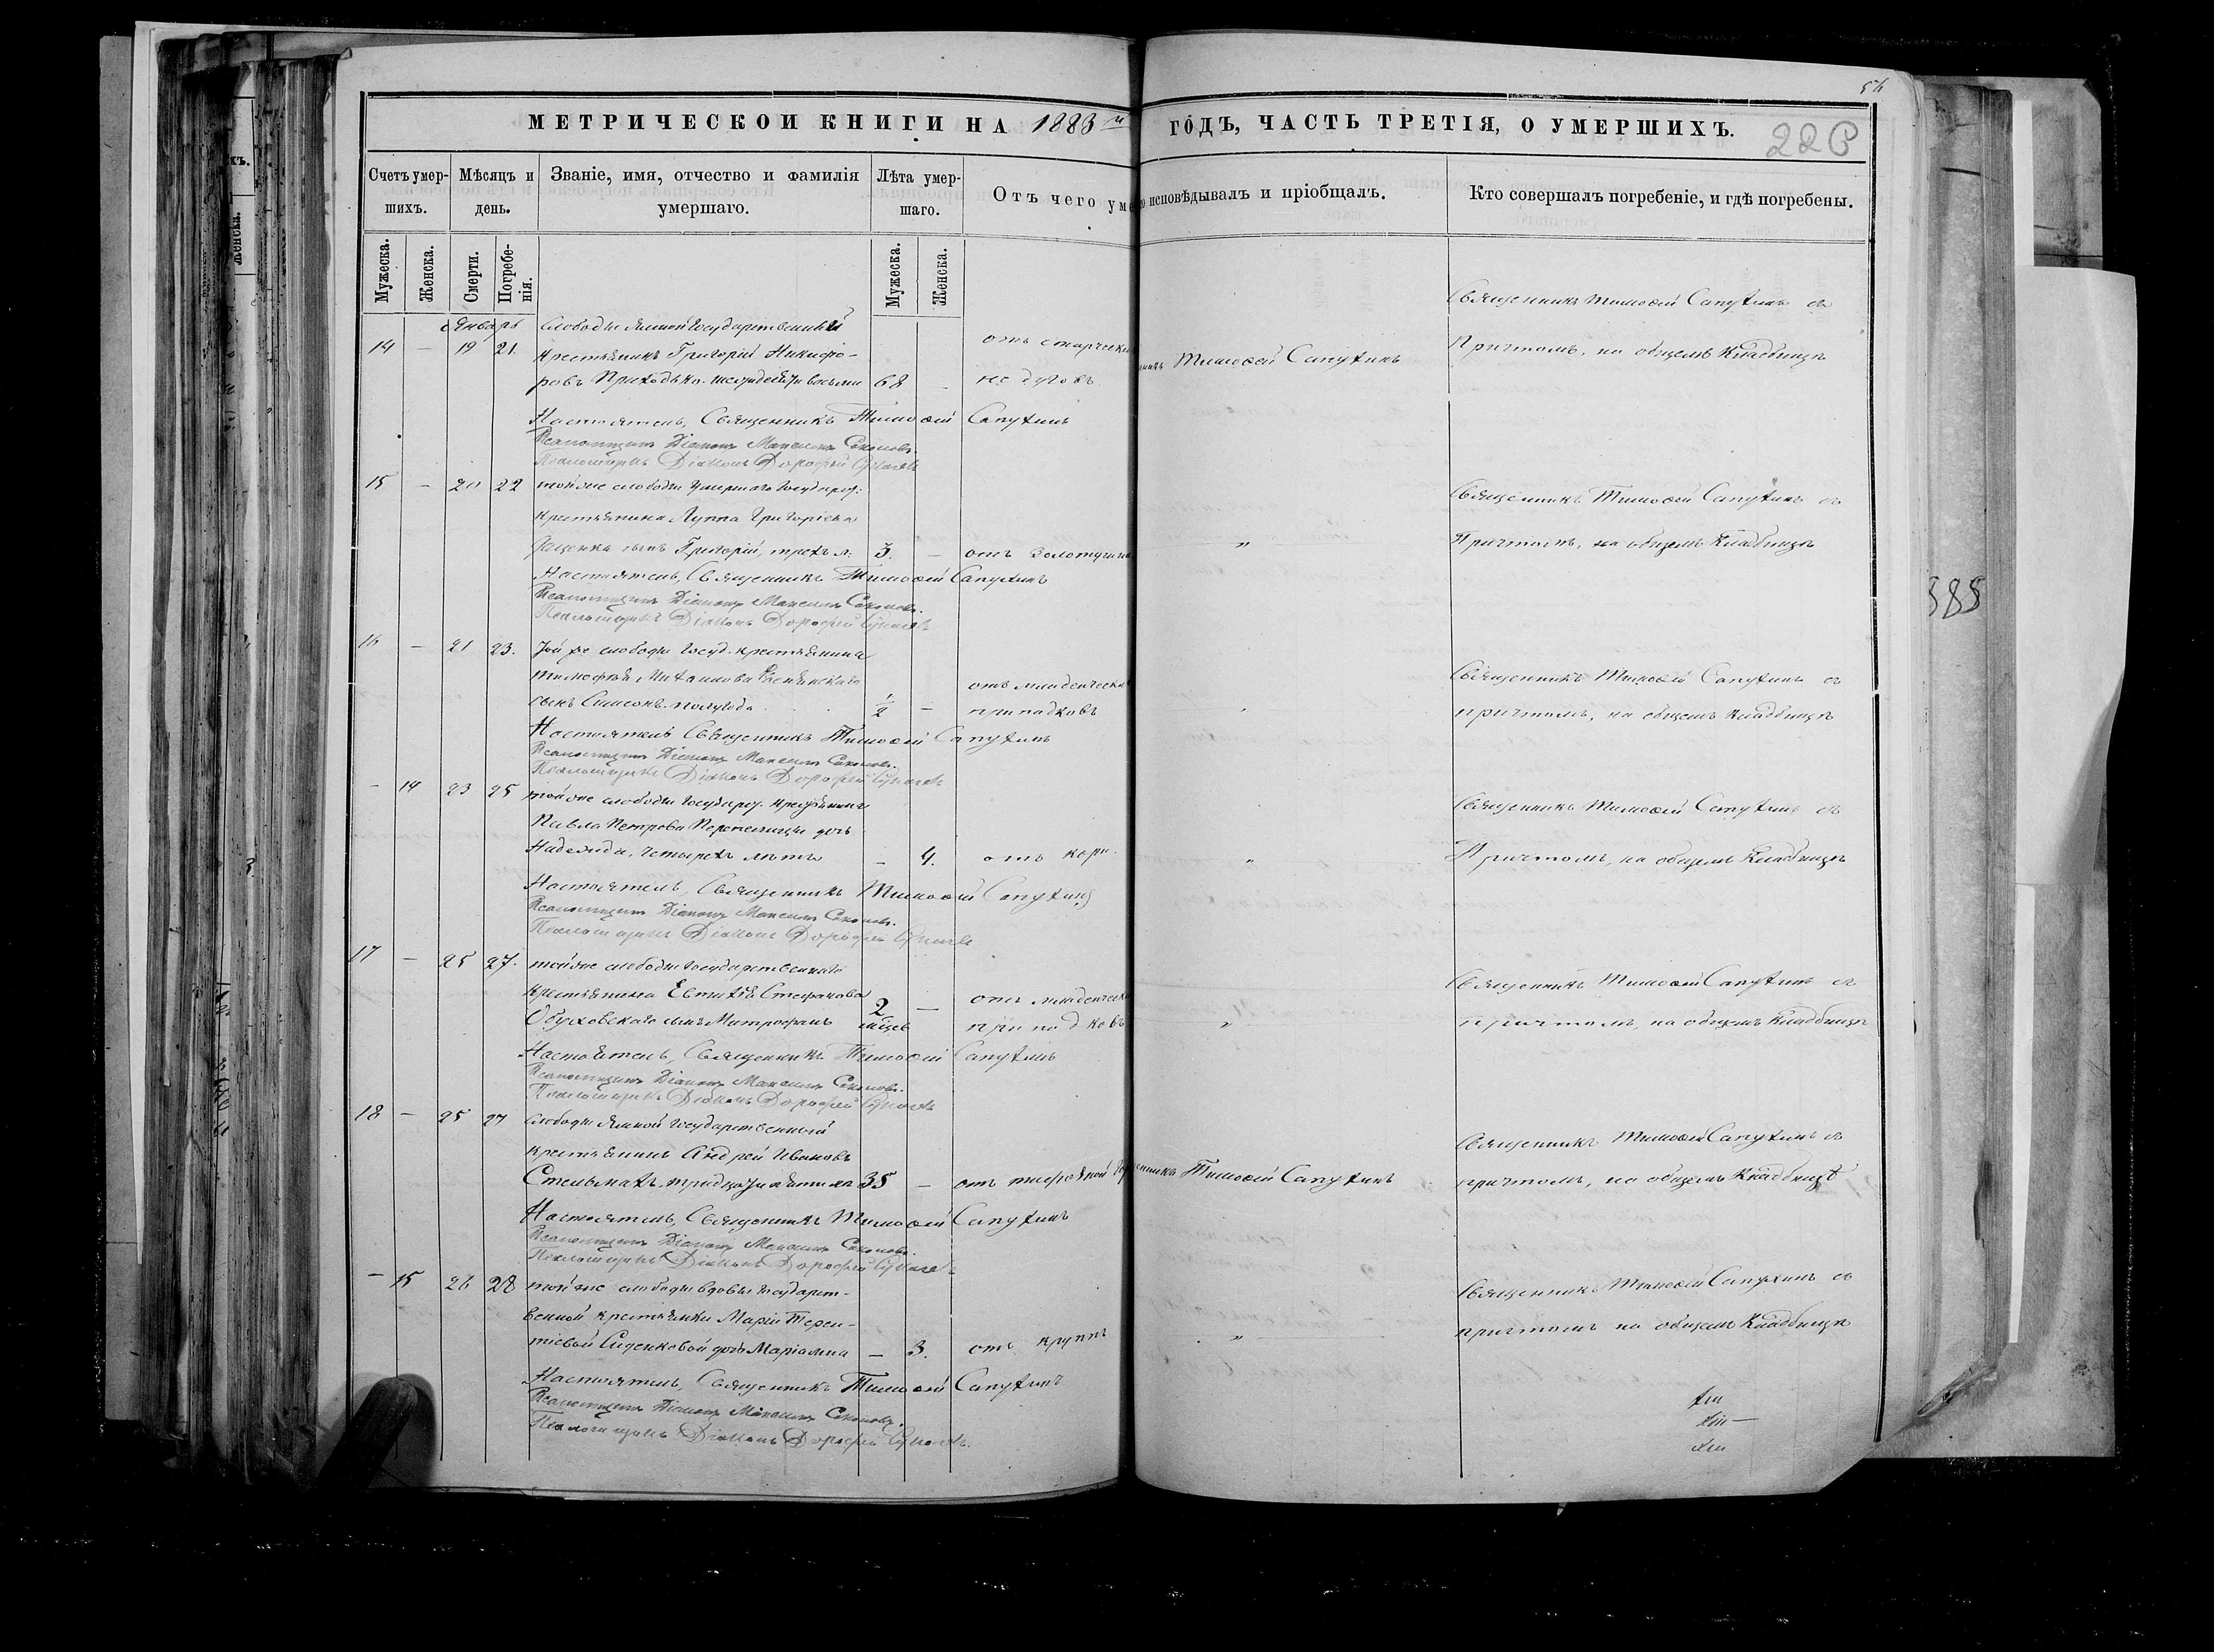 54
МЕТРИЧЕСКОЙ КНИГИ НА 1883 й ГОДЪ, ЧАСТЬ ТРЕТІЯ, О УМЕРШИХЪ.
226
Счетъ умершихъ.
Мѣсяцъ и день.
Званіе, имя, отчество и фамилія умершаго.
Лѣта умершаго.
Отъ чего уме
о исповѣдывалъ и пріобщалъ.
Кто совершалъ погребеніе, и гдѣ погребены.
Мужеска.
Женска.
Смерти.
Погребенія.
Мужеска.
Женска.
Январь
14 — 19 21.
Слободы Ямной Государственный
крестьянинъ Григорій Никифо-
ровъ Приходько. шестидесяти восьми 68 —
отъ старчески
недуговъ
Тимоѳей Сапухинъ
Священникъ Тимоѳей Сапухинъ съ
Причтомъ, на общемъ Кладбищѣ
Настоятель, Священникъ Тимоѳей Сапухинъ
Псаломщикъ Діаконъ Максимъ
Псаломщикъ Діаконъ Дорофей
15 — 20 22
той же слободы умершаго Государ.
крестьянина Луппа Григоріева
сынъ Григорій, трехъ л. 3. —
отъ золотухи
"
Священникъ Тимоѳей Сапухинъ съ
Причтомъ, на общемъ Кладбищѣ
Настоятель, Священникъ Тимоѳей Сапухинъ
Псаломщикъ Діаконъ Максимъ
Псаломщикъ Діаконъ Дорофей
16 — 21 23.
Той же слободы Госуд. крестьянина
Тимофея Михаилова
сынъ Симеонъ. полугода 1/2 —
отъ младенчески
припадковъ
Священникъ Тимоѳей Сапухинъ съ
причтомъ, на общемъ Кладбищѣ
Настоятель Священникъ Тимоѳей Сапухинъ
Псаломщикъ Діаконъ Максимъ
Псаломщикъ Діаконъ Дорофей
— 14 23 25
той же слободы Государ. крестьянина
Павла Петрова Перепелицы дочь
Надежда, четырехъ лѣтъ — 4.
отъ кори
"
Священникъ Тимоѳей Сапухинъ съ
Причтомъ, на общемъ Кладбищѣ
Настоятель, Священникъ Тимоѳей Сапухинъ
Псаломщикъ Діаконъ Максимъ
Псаломщикъ Діаконъ Дорофей
17 — 25 27.
той же слободы Государственнаго
крестьянина Евтихія Стефанова
Обуховскаго сынъ Митрофанъ 2 мѣсв —
отъ младенчески
припадковъ
"
Священникъ Тимоѳей Сапухинъ съ
причтомъ, на общемъ Кладбищѣ
Настоятель, Священникъ Тимоѳей Сапухинъ
Псаломщикъ Діаконъ Максимъ
Псаломщикъ Діаконъ Дорофей
18 — 25 27
Слободы Ямной Государственный
крестьянинъ Андрей Ивановъ
Стельмахъ, тридцати пяти лѣ 35 —
отъ тифозной
Тимоѳей Сапухинъ
Священникъ Тимоѳей Сапухинъ съ
причтомъ, на общемъ Кладбищѣ
Настоятель, Священникъ Тимоѳей Сапухинъ
Псаломщикъ Діаконъ Максимъ
Псаломщикъ Діаконъ Дорофей
— 15 26 28
той же слободы вдовы Государст-
венной крестьянки Маріи Терен-
тіевой Сиденковой дочь Маріамна — 3.
отъ крупа
"
Священникъ Тимоѳей Сапухинъ съ
причтомъ на общемъ Кладбищѣ
Настоятель, Священникъ Тимоѳей Сапухинъ
Псаломщикъ Діаконъ Максимъ
Псаломщикъ Діаконъ Дорофей
585